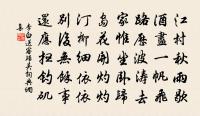 江村秋雨歇
酒盡一帆飛
路歷波濤去
家惟坐臥歸
島花開灼灼
汀柳細依依
別後無餘事
還應掃釣磯
李白送客歸吳詞典網
集